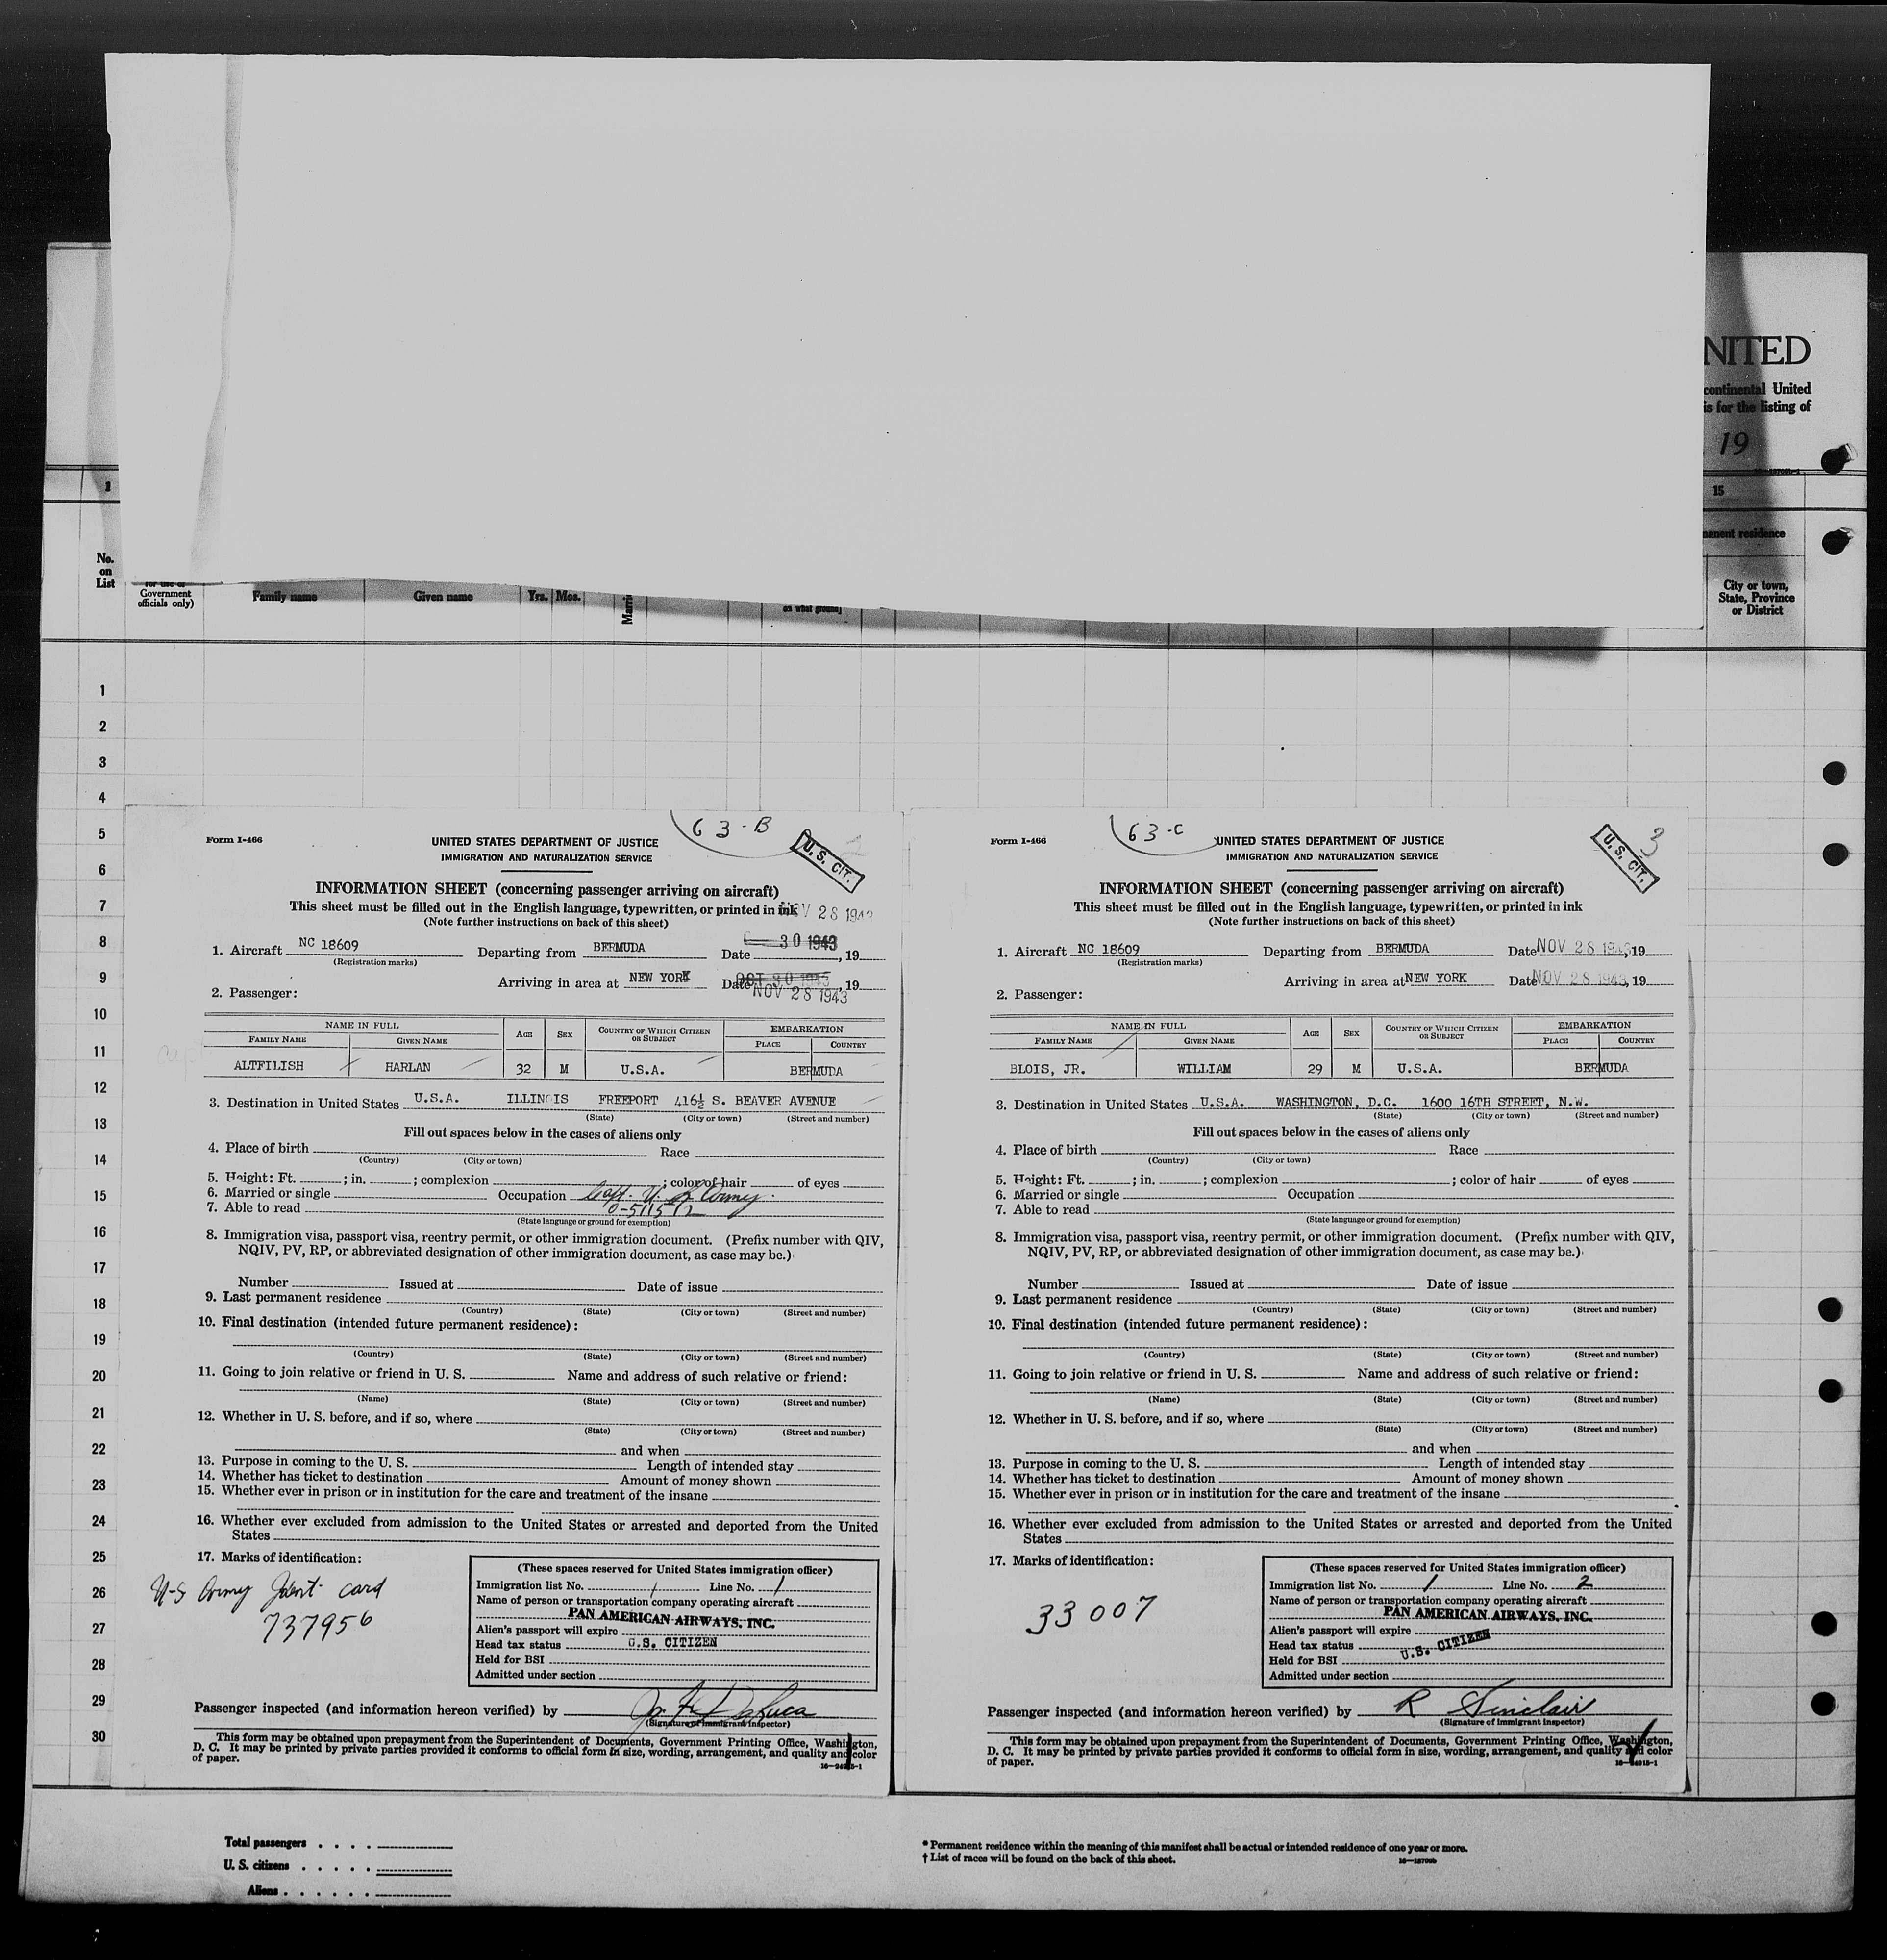 NITED
continental United
is for the listing of
19
1
15
manent residence
No.
on
List
Government
officials only)
Family name
Given name
Yrs.
Mos.
on what ground]
City or town,
State, Province
or District
1
2
3
4
5
6
7
8
9
10
11
12
13
14
15
16
17
18
19
20
21
22
23
24
25
26
27
28
29
30
63-B
Form I-466
UNITED STATES DEPARTMENT OF JUSTICE
U. S. CIT.
IMMIGRATION AND NATURALIZATION SERVICE
INFORMATION SHEET (concerning passenger arriving on aircraft)
This sheet must be filled out in the English language, typewritten, or printed in ink
NOV 28 1943
(Note further instructions on back of this sheet)
1. Aircraft NC 18609 Departing from BERMUDA Date 30 1943, 19
(Registration marks)
Arriving in area at NEW YORK Date OCT 30 1943, 19
NOV 28 1943
2. Passenger:
NAME IN FULL AGE SEX COUNTRY OF WHICH CITIZEN OR SUBJECT EMBARKATION
FAMILY NAME GIVEN NAME PLACE COUNTRY
ALTFILISH HARLAN 32 M U.S.A. BERMUDA
3. Destination in United States U.S.A. ILLINOIS FREEPORT 416½ S. BEAVER AVENUE
(State) (City or town) (Street and number)
Fill out spaces below in the cases of aliens only
4. Place of birth Race
(Country) (City or town)
5. Height: Ft. ; in. ; complexion ; color of hair of eyes
6. Married or single Occupation Capt. U. S. Army.
7. Able to read 0-511512
(State language or ground for exemption)
8. Immigration visa, passport visa, reentry permit, or other immigration document. (Prefix number with QIV,
NQIV, PV, RP, or abbreviated designation of other immigration document, as case may be.)
Number Issued at Date of issue
9. Last permanent residence
(Country) (State) (City or town) (Street and number)
10. Final destination (intended future permanent residence):
(Country) (State) (City or town) (Street and number)
11. Going to join relative or friend in U. S. Name and address of such relative or friend:
(Name) (State) (City or town) (Street and number)
12. Whether in U. S. before, and if so, where
(State) (City or town) (Street and number)
and when
13. Purpose in coming to the U. S. Length of intended stay
14. Whether has ticket to destination Amount of money shown
15. Whether ever in prison or in institution for the care and treatment of the insane
16. Whether ever excluded from admission to the United States or arrested and deported from the United
States
17. Marks of identification:
U-S Army Ident. card
737956
(These spaces reserved for United States immigration officer)
Immigration list No. 1 Line No. 1
Name of person or transportation company operating aircraft
PAN AMERICAN AIRWAYS, INC.
Alien's passport will expire
Head tax status U.S. CITIZEN
Held for BSI
Admitted under section
Passenger inspected (and information hereon verified) by
(Signature of Immigrant Inspector)
This form may be obtained upon prepayment from the Superintendent of Documents, Government Printing Office, Washington,
D. C. It may be printed by private parties provided it conforms to official form in size, wording, arrangement, and quality and color
of paper.
63-C
3
Form I-466
UNITED STATES DEPARTMENT OF JUSTICE
U. S. CIT.
IMMIGRATION AND NATURALIZATION SERVICE
INFORMATION SHEET (concerning passenger arriving on aircraft)
This sheet must be filled out in the English language, typewritten, or printed in ink
(Note further instructions on back of this sheet)
1. Aircraft NC 18609 Departing from BERMUDA Date NOV 28 1943, 19
(Registration marks)
Arriving in area at NEW YORK Date NOV 28 1943, 19
2. Passenger:
NAME IN FULL AGE SEX COUNTRY OF WHICH CITIZEN OR SUBJECT EMBARKATION
FAMILY NAME GIVEN NAME PLACE COUNTRY
BLOIS, JR. WILLIAM 29 M U.S.A. BERMUDA
3. Destination in United States U.S.A. WASHINGTON, D.C. 1600 16TH STREET, N.W.
(State) (City or town) (Street and number)
Fill out spaces below in the cases of aliens only
4. Place of birth Race
(Country) (City or town)
5. Height: Ft. ; in. ; complexion ; color of hair of eyes
6. Married or single Occupation
7. Able to read
(State language or ground for exemption)
8. Immigration visa, passport visa, reentry permit, or other immigration document. (Prefix number with QIV,
NQIV, PV, RP, or abbreviated designation of other immigration document, as case may be.)
Number Issued at Date of issue
9. Last permanent residence
(Country) (State) (City or town) (Street and number)
10. Final destination (intended future permanent residence):
(Country) (State) (City or town) (Street and number)
11. Going to join relative or friend in U. S. Name and address of such relative or friend:
(Name) (State) (City or town) (Street and number)
12. Whether in U. S. before, and if so, where
(State) (City or town) (Street and number)
and when
13. Purpose in coming to the U. S. Length of intended stay
14. Whether has ticket to destination Amount of money shown
15. Whether ever in prison or in institution for the care and treatment of the insane
16. Whether ever excluded from admission to the United States or arrested and deported from the United
States
17. Marks of identification:
33007
(These spaces reserved for United States immigration officer)
Immigration list No. 1 Line No. 2
Name of person or transportation company operating aircraft
PAN AMERICAN AIRWAYS, INC.
Alien's passport will expire
Head tax status U.S. CITIZEN
Held for BSI
Admitted under section
Passenger inspected (and information hereon verified) by R Sinclair
(Signature of Immigrant Inspector)
This form may be obtained upon prepayment from the Superintendent of Documents, Government Printing Office, Washington,
D. C. It may be printed by private parties provided it conforms to official form in size, wording, arrangement, and quality and color
of paper.
Total passengers
U. S. citizens
Aliens
* Permanent residence within the meaning of this manifest shall be actual or intended residence of one year or more.
† List of races will be found on the back of this sheet.